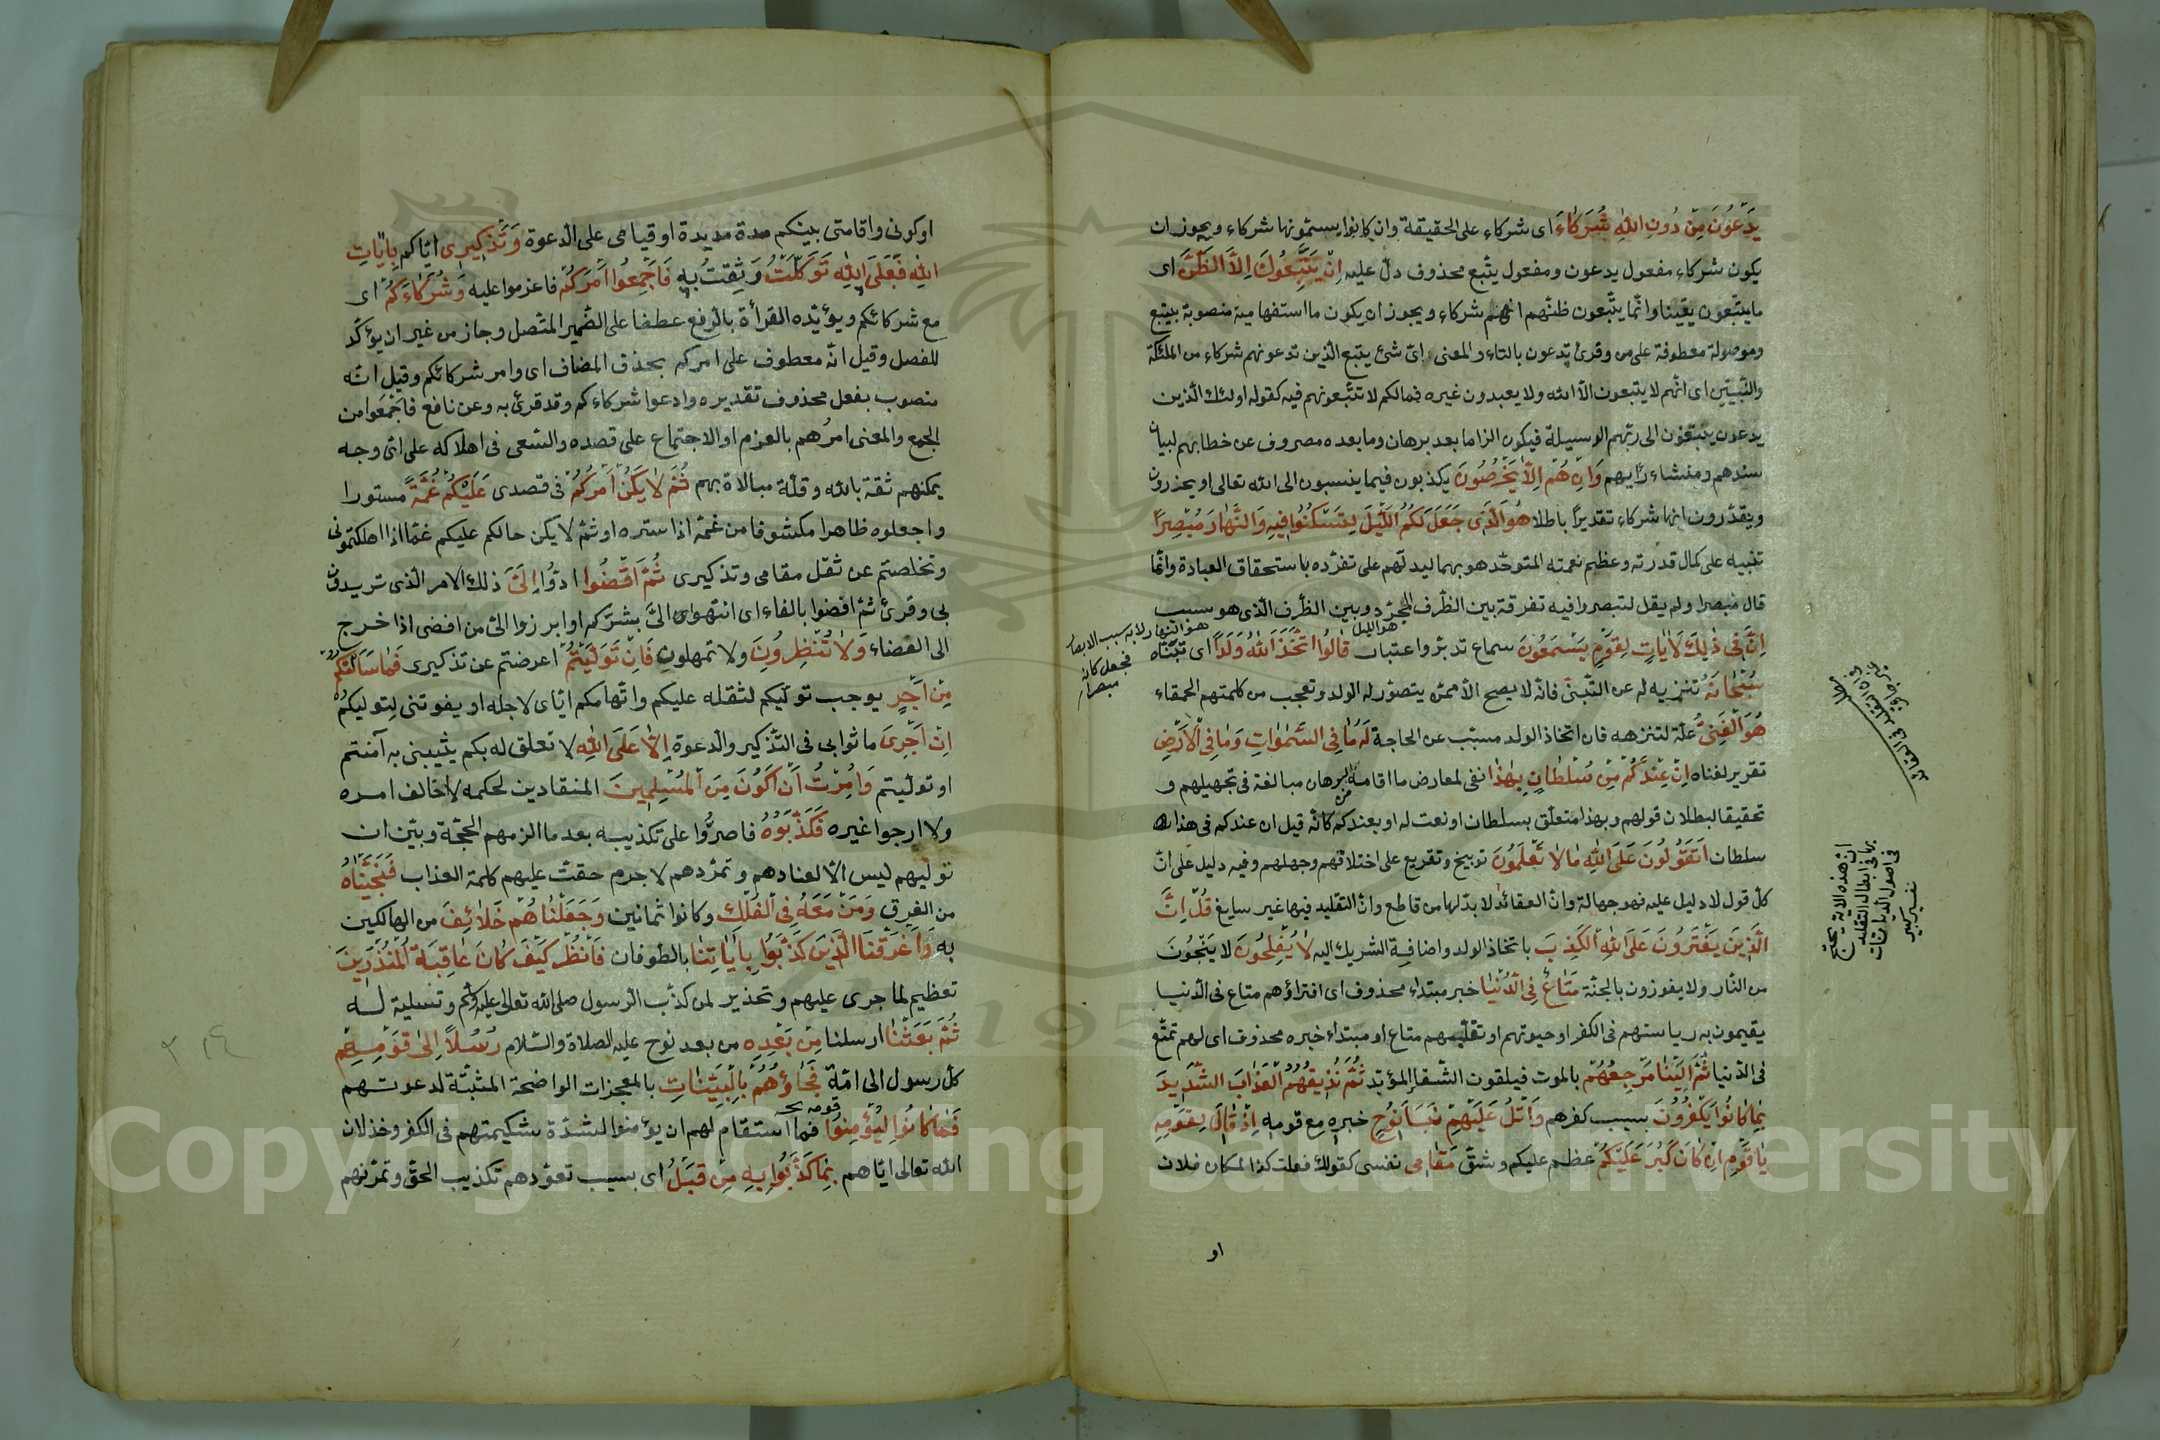 يَدْعُونَ مِنْ دُونِ اللهِ شُرَكَاءَ اى شركاء على الحقيقة وان كانوا يسمّونها شركاء ويجوز ان
يكون شركاء مفعول يدعون ومفعول يتّبع محذوف دلّ عليه اِنْ يَتَّبِعُونَ اِلاَّ الظَّنَّ اى
ما يتّبعون يقينا وانّما يتّبعون ظنّهم انّهم شركاء ويجوز ان يكون ما استفهامية منصوبة بيتّبع
وموصولة معطوفة على من وقرئ تدعون بالتاء والمعنى اىّ شئ يتبع الّذين تدعونهم شركاء من الملئكة
والنّبيّين اى انّهم لا يتبعون الّا الله ولا يعبدون غيره فمالكم لا تتّبعونهم فيه كقوله اولئك الّذين
يدعون يبتغون الى ربّهم الوسيلة فيكون الزاما بعد برهان وما بعده مصروف عن خطابهم لبيان
سندهم ومنشاء رأيهم وَاِنْ هُمْ اِلاَّ يَخْرُصُونَ يكذبون فيما ينسبون الى الله تعالى او يحزرون
ويقدّرون انها شركاء تقديرًا باطلا هُوَ الَّذِى جَعَلَ لَكُمُ اللَّيْلَ لِتَسْكُنُوا فِيهِ وَالنَّهَارَ مُبْصِرًا
تنبيه على كمال قدرته وعظيم نعمته المتوحّد هو بهما ليدلّهم على تفرّده باستحقاق العبادة وانّما
قال مبصرا ولم يقل لتبصروا فيه تفرقة بين الظّرف المجرّد وبين الظّرف الّذى هو سبب
هو الليل
هو النهار لانه سبب الابصار
فجعل كانه
مبصرا
اِنَّ فِى ذٰلِكَ لَاٰيَاتٍ لِقَوْمٍ يَسْمَعُونَ سماع تدبّر واعتبار قَالُوا اتَّخَذَ اللهُ وَلَدًا اى تبنّاه
سُبْحَانَهُ تنزيه له عن التّبنّى فانّه لا يصح الّا ممّن يتصوّر له الولد وتعجب من كلمتهم الحمقاء
هُوَ الْغَنِىُّ علّة لتنزهه فان اتخاذ الولد مسبّب عن الحاجة لَهُ مَا فِى السَّمٰوَاتِ وَمَا فِى الْاَرْضِ
تقرير لغناه اِنْ عِنْدَكُمْ مِنْ سُلْطَانٍ بِهٰذَا نفى لمعارض ما اقامه من البرهان مبالغة فى تجهيلهم و
تحقيقا لبطلان قولهم وبهذا متعلّق بسلطان او نعت له او بعندكم كانّه قيل ان عندكم فى هذا
سلطان اَتَقُولُونَ عَلَى اللهِ مَا لَا تَعْلَمُونَ توبيخ وتقريع على اختلاقهم وجهلهم وفيه دليل على انّ
كلّ قول لا دليل عليه فهو جهالة وانّ العقائد لا بدّ لها من قاطع وانّ التقليد فيها غير سايغ قُلْ اِنَّ
الَّذِينَ يَفْتَرُونَ عَلَى اللهِ الْكَذِبَ باتخاذ الولد واضافة الشريك اليه لَا يُفْلِحُونَ لا ينجون
من النّار ولا يفوزون بالجنّة مَتَاعٌ فِى الدُّنْيَا خبر مبتداء محذوف اى افتراؤهم متاع فى الدّنيا
يقيمون به رياستهم فى الكفر او حيوتهم او تقلّبهم متاع او مبتداء خبره محذوف اى لهم تمتّع
فى الدّنيا ثُمَّ اِلَيْنَا مَرْجِعُهُمْ بالموت فيلقون الشقاء المؤبّد ثُمَّ نُذِيقُهُمُ الْعَذَابَ الشَّدِيدَ
بِمَا كَانُوا يَكْفُرُونَ بسبب كفرهم وَاتْلُ عَلَيْهِمْ نَبَاَ نُوحٍ خبره مع قومه اِذْ قَالَ لِقَوْمِهِ
يَا قَوْمِ اِنْ كَانَ كَبُرَ عَلَيْكُمْ عظم عليكم وشقّ مَقَامِى نفسى كقولك فعلت كذا لمكان فلان
او
ان هذه الاية يحتج
بها فى ابطال التقليد
فى اصول الديانات
تفسير كبير
او كونى واقامتى بينكم مدة مديدة او قيامى على الدعوة وَتَذْكِيرِى ايّاكم بِاٰيَاتِ
اللهِ فَعَلَى اللهِ تَوَكَّلْتُ وَثِقتُ به فَاَجْمِعُوا اَمْرَكُمْ فاعزموا عليه وَشُرَكَاءَكُمْ اى
مع شركائكم ويؤيّده القرأة بالرّفع عطفا على الضّمير المتّصل وجاز من غير ان يؤكّد
للفصل وقيل انّه معطوف على امركم بحذف المضاف اى وامر شركائكم وقيل انّه
منصوب بفعل محذوف تقديره وادعوا شركاءكم وقد قرئ به وعن نافع فاجمعوا من
الجمع والمعنى امرهم بالعزم او الاجتماع على قصده والسّعى فى اهلاكه على اىّ وجه
يمكنهم ثقة بالله وقلّة مبالاة بهم ثُمَّ لَا يَكُنْ اَمْرُكُمْ فى قصدى عَلَيْكُمْ غُمَّةً مستورا
واجعلوه ظاهرا مكشوفا من غمّه اذا ستره او ثمّ لا يكن حالكم عليكم غمّا اذا اهلكتمونى
وتخلصتم عن ثقل مقامى وتذكيرى ثُمَّ اقْضُوا ادّوا اِلَىَّ ذلك الامر الّذى تريدون
بى وقرئ ثمّ افضوا بالفاء اى انتهوا الىَّ بشرّكم او ابرزوا الىّ من افضى اذا خرج
الى الفضاء وَلَا تُنْظِرُونِ ولا تمهلون فَاِنْ تَوَلَّيْتُمْ اعرضتم عن تذكيرى فَمَا سَاَلْتُكُمْ
مِنْ اَجْرٍ يوجب تولّيكم لثقله عليكم واتّهامكم ايّاى لاجله او يفوتنى لتوليكم
اِنْ اَجْرِىَ ما ثوابى فى التّذكير والدعوة اِلاَّ عَلَى اللهِ لا تعلق له بكم يثيبنى به آمنتم
او تولّيتم وَاُمِرْتُ اَنْ اَكُونَ مِنَ الْمُسْلِمِينَ المنقادين لحكمه لا اخالف امره
ولا ارجوا غيره فَكَذَّبُوهُ فاصرُّوا على تكذيبه بعد ما الزمهم الحجّة وبيّن ان
تولّيهم ليس الّا لعنادهم وتمرّدهم لا جرم حقّت عليهم كلمة العذاب فَنَجَّيْنَاهُ
من الغرق وَمَنْ مَعَهُ فِى الْفُلْكِ وكانوا ثمانين وَجَعَلْنَاهُمْ خَلَائِفَ من الهالكين
به وَاَغْرَقْنَا الَّذِينَ كَذَّبُوا بِاٰيَاتِنَا بالطّوفان فَانْظُرْ كَيْفَ كَانَ عَاقِبَةُ الْمُنْذَرِينَ
تعظيم لما جرى عليهم وتحذير لمن كذّب الرسول صلى الله تعالى عليه وسلم وتسلية له
ثُمَّ بَعَثْنَا ارسلنا مِنْ بَعْدِهِ من بعد نوح عليه الصلاة والسّلام رُسُلاً اِلٰى قَوْمِهِمْ
كلّ رسول الى امّة قومه فَجَاؤُهُمْ بِالْبَيِّنَاتِ بالمعجزات الواضحة المثبتة لدعوتهم
فَمَا كَانُوا لِيُؤْمِنُوا فما استقام لهم ان يؤمنوا لشدّة شكيمتهم فى الكفر وخذلان
الله تعالى ايّاهم بِمَا كَذَّبُوا بِهِ مِنْ قَبْلُ اى بسبب تعوّدهم تكذيب الحقّ وتمرّنهم
Copyright © King Saud University
195